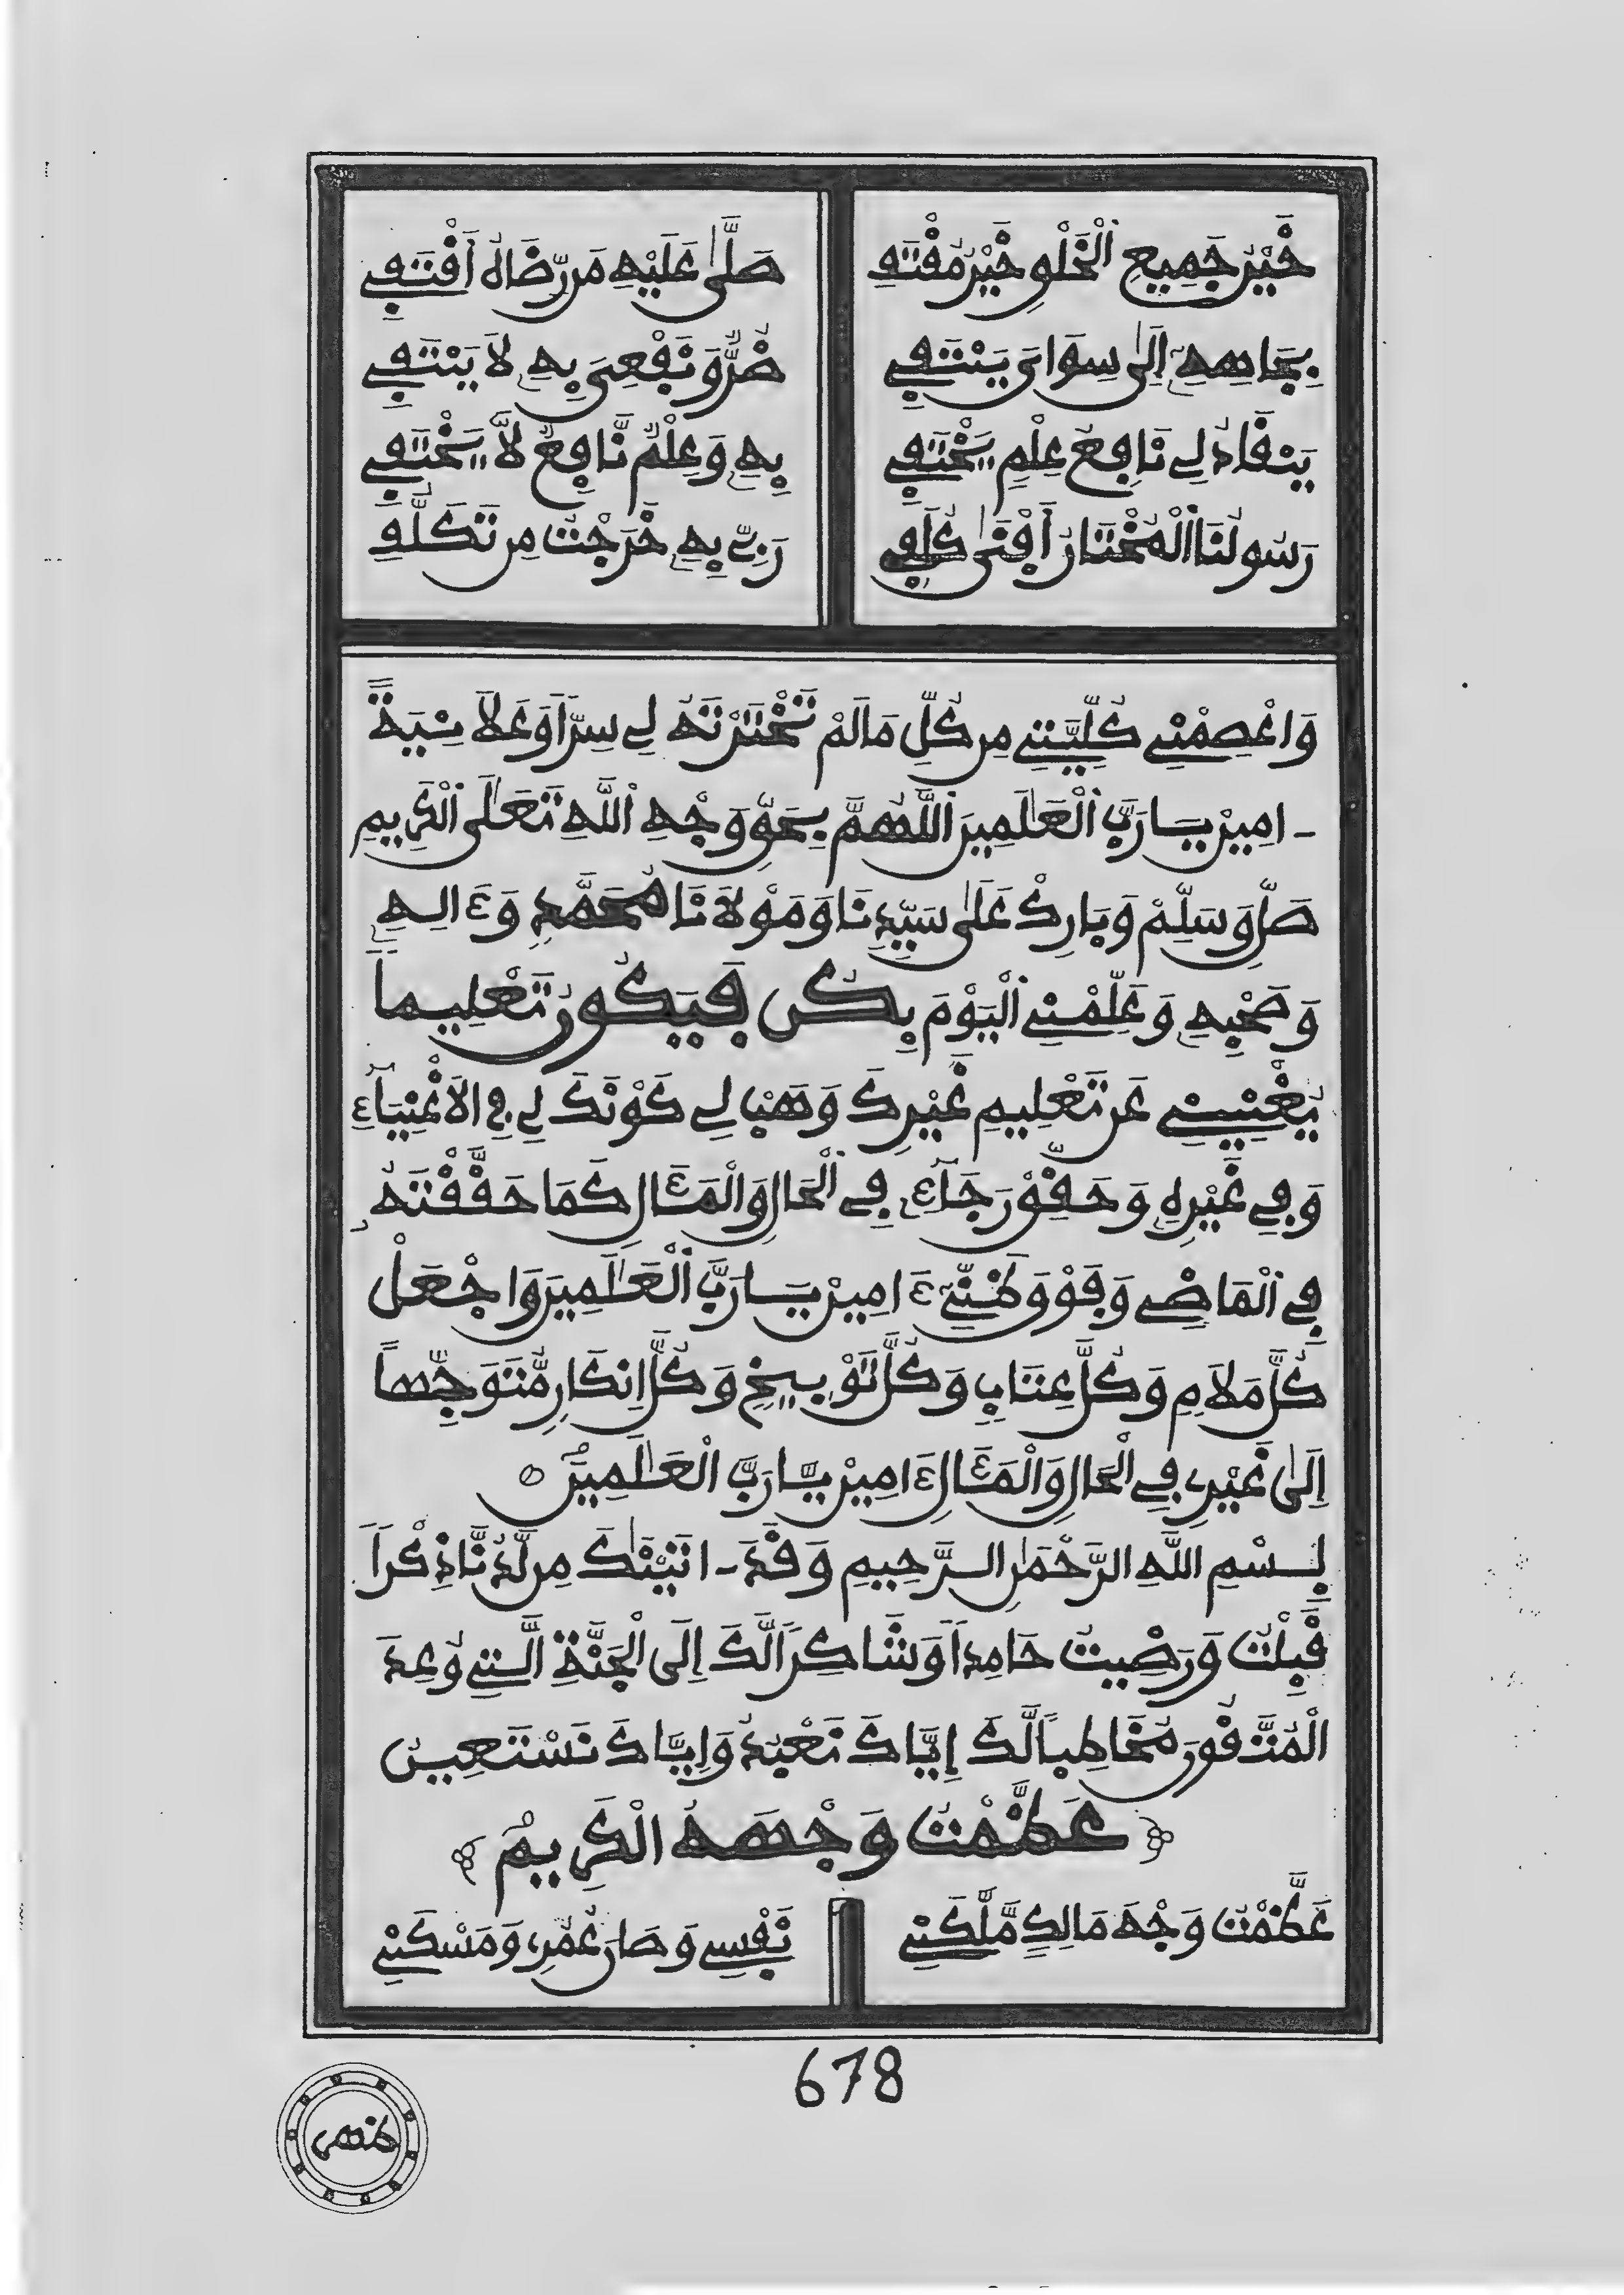 خَيْرِ جَمِيعِ الْخَلْقِ خَيْرِ مُقْتَفِ صَلَّى عَلَيْهِ مَن رِّضَاهُ أَقْتَفِي
بِجَاهِهِ إِلَى سِوَاىَ يَنْتَفِي ضُرٌّ وَنَفْعِى بِهِ لاَ يَنْتَفِي
يَنْقَادُ لِي نَافِعُ عِلْمٍ يَخْتَفِي بِهِ وَعِلْمٌ نَّافِعٌ لاَّ يَخْتَفِي
رَسُولُنَا الْمُخْتَارُ أَفْنَى كُلَفِي رَبِّي بِهِ خَرَجْتُ مِن تَكَلُّفِ
وَاعْصِمْنِي كُلِّيَّتِي مِن كُلِّ مَا لَمْ تَخْتَرْتَهُ لِي سِرّاً وَعَلاَنِيَةً
ءَامِينْ يَا رَبَّ الْعَالَمِينَ اللَّهُمَّ بِحَقِّ وَجْهِ اللَّهِ تَعَلَى الْكَرِيمِ
صَلِّ وَسَلِّمْ وَبَارِكْ عَلَى سَيِّدِنَا وَمَوْلاَنَا مُحَمَّدٍ وَءَالِهِ
وَصَحْبِهِ وَعَلِّمْنِي الْيَوْمَ بِكُن فَيَكُونُ تَعْلِيماً
يُغْنِينِي عَن تَعْلِيمِ غَيْرِكَ وَهَبْ لِي كَوْنَكَ لِي فِي الاَغْنِيَاءِ
وَفِي غَيْرِهِ وَحَقِّقْ رَجَاءِي فِي الْحَالِ وَالْمَئَالِ كَمَا حَقَّقْتَهُ
فِي الْمَاضِي وَفَوْقَ ظَنِّي ءَامِينْ يَا رَبَّ الْعَالَمِينَ وَاجْعَلْ
كُلَّ مَلاَمٍ وَكُلَّ عِتَابٍ وَكُلَّ تَوْبِيخٍ وَكُلَّ إِنكَارٍ مُّتَوَجِّهاً
إِلَى غَيْرِى فِي الْحَالِ وَالْمَئَالِ ءَامِينْ يَا رَبَّ الْعَالَمِينَ
بِسْمِ اللَّهِ الرَّحْمَنِ الرَّحِيمِ وَقَدَ ـاتَيْنَكَ مِن لَّدُنَّا ذِكْراً
قَبِلْتُ وَرَضِيتُ حَامِداً وَشَاكِراً لَّكَ إِلَى الْجَنَّةِ الَّتِي وُعِدَ
الْمُتَّقُونَ مُخَاطِباً لَّكَ إِيَّاكَ نَعْبُدُ وَإِيَّاكَ نَسْتَعِينُ
عَظَّمْتُ وَجْهَهُ الْكَرِيمُ
عَظَّمْتُ وَجْهَ مَالِكٍ مَّلَّكَنِي نَفْسِي وَصَانَ عُمُرِى وَمَسْكَنِي
678